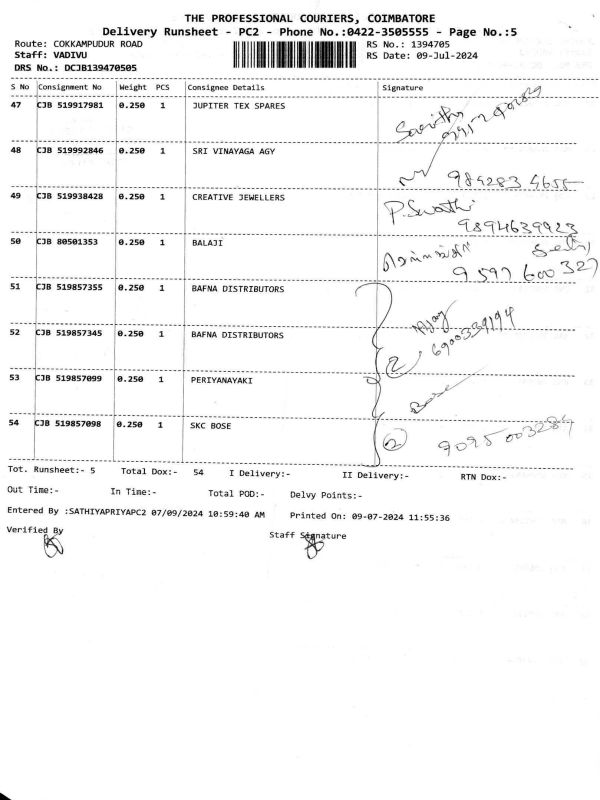 THE PROFESSIONAL COURIERS, COIMBATORE
Delivery Runsheet - PC2 - Phone No.:0422-3505555 - Page No.:5
Route: COKKAMPUDUR ROAD RS No.: 1394705
Staff: VADIVU RS Date: 09-Jul-2024
DRS No.: DCJB139470505
S No Consignment No Weight PCS Consignee Details Signature
47 CJB 519917981 0.250 1 JUPITER TEX SPARES
48 CJB 519992846 0.250 1 SRI VINAYAGA AGY
984283 4655
49 CJB 519938428 0.250 1 CREATIVE JEWELLERS P.Swathi
9894639923
50 CJB 80501353 0.250 1 BALAJI
9597600327
51 CJB 519857355 0.250 1 BAFNA DISTRIBUTORS
Ajay
52 CJB 519857345 0.250 1 BAFNA DISTRIBUTORS
2 6900339194
53 CJB 519857099 0.250 1 PERIYANAYAKI
Bose
54 CJB 519857098 0.250 1 SKC BOSE
2 9095003284
Tot. Runsheet:- 5 Total Dox:- 54 I Delivery:- II Delivery:- RTN Dox:-
Out Time:- In Time:- Total POD:- Delvy Points:-
Entered By :SATHIYAPRIYAPC2 07/09/2024 10:59:40 AM Printed On: 09-07-2024 11:55:36
Verified By Staff Signature